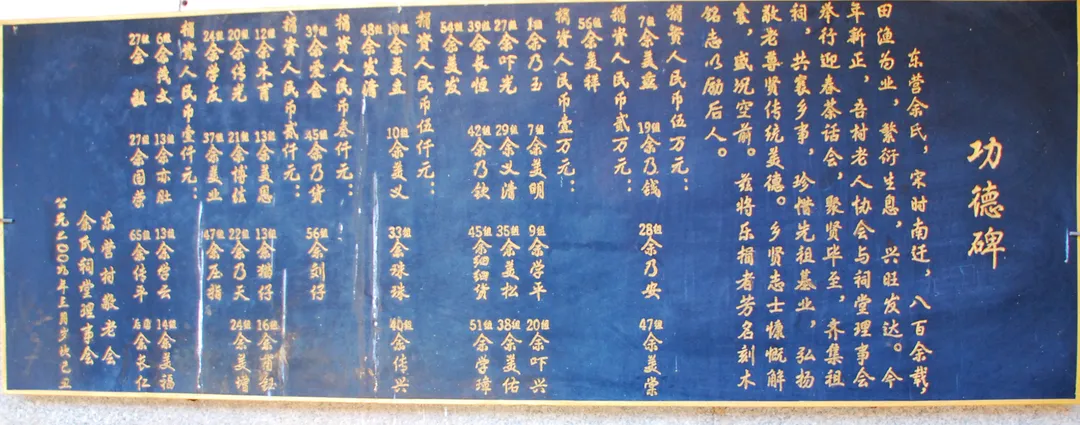 功德碑
东营余氏，宋时南迁，八百余载，
田渔为业，繁衍生息，兴旺发达。今
年新正，吾村老人协会与祠堂理事会
举行迎春茶话会，聚贤毕至，齐集祖
祠，共襄乡事，珍惜先祖基业，弘扬
敬老尊贤传统美德。乡贤志士慷慨解
囊，盛况空前。兹将乐捐者芳名刻木
铭志以励后人。
捐资人民币伍万元：
7组余美 19组余乃钱 28组余乃安 47组余美棠
捐资人民币贰万元：
56组余美祥
捐资人民币壹万元：
1组余乃玉 7组余美明 9组余学平 20组余吓兴
27组余吓光 29组余义清 35组余美松 38组余美佑
39组余长恒 42组余乃钦 45组余细细货 51组余学璋
54组余美发
捐资人民币伍仟元：
10组余美立 10组余美义 33组余珠珠 40组余传兴
48组余发清
捐资人民币叁仟元：
39组余爱金 45组余乃货 56组余刘仔
捐资人民币贰仟元：
12组余木育 13组余美恩 13组余猫仔 16组余
20组余传光 21组余博铉 22组余乃天 24组余美增
24组余学友 37组余美业 47组余压指
捐资人民币壹仟元：
6组余茂文 13组余亦肚 13组余学云 14组余美福
27组余 27组余国营 65组余传平 余长仁
东营村敬老会
余氏祠堂理事会
公元二00九年三月岁次己丑